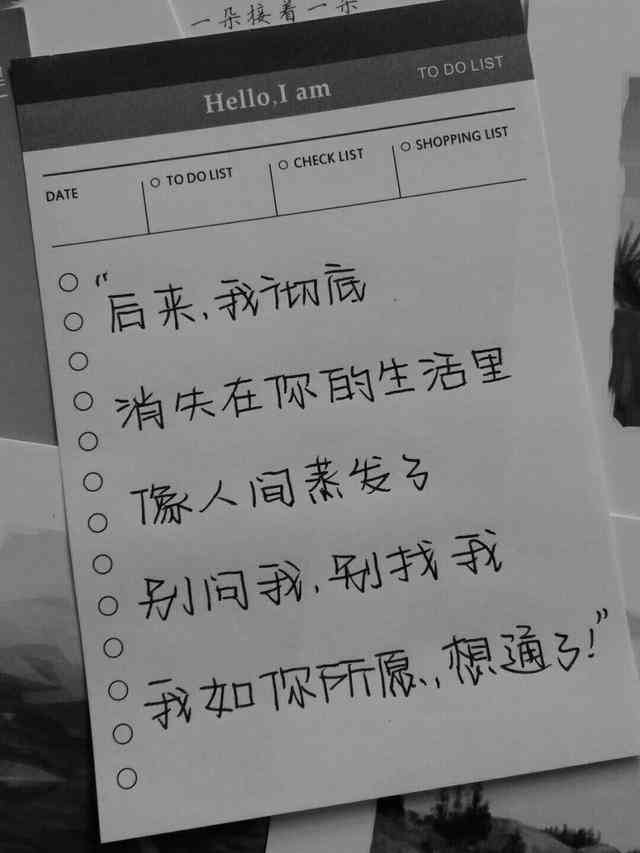 一朵接着一朵
TO DO LIST
Hello,I am
DATE
TO DO LIST
CHECK LIST
SHOPPING LIST
“后来,我彻底
消失在你的生活里
像人间蒸发了
别问我,别找我
我如你所愿,想通了!”